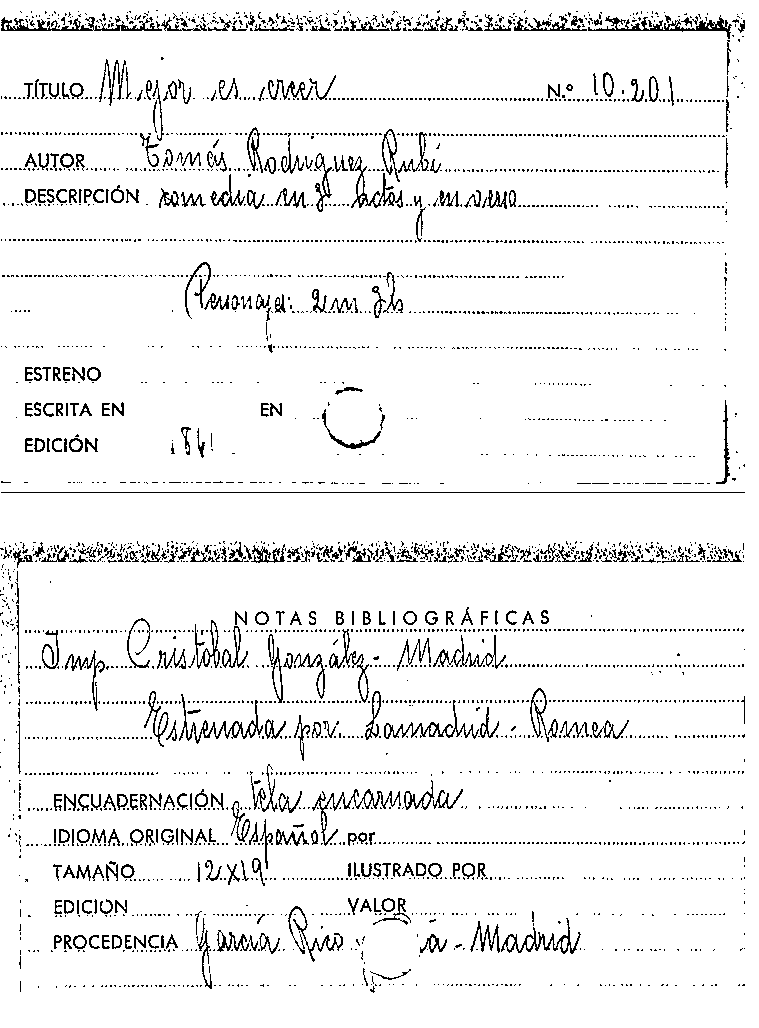 TÍTULO Mejor es creer N.º 10.201
AUTOR Tomás Rodriguez Rubí
DESCRIPCIÓN comedia en 3 actos y en verso
Personajes: 2m 3h
ESTRENO
ESCRITA EN EN
EDICIÓN 1861
NOTAS BIBLIOGRÁFICAS
Imp. Cristobal González - Madrid
Estrenada por Lamadrid - Romea
ENCUADERNACIÓN tela encarnada
IDIOMA ORIGINAL Español por
TAMAÑO 12x19 ILUSTRADO POR
EDICION VALOR
PROCEDENCIA García Rico y - Madrid